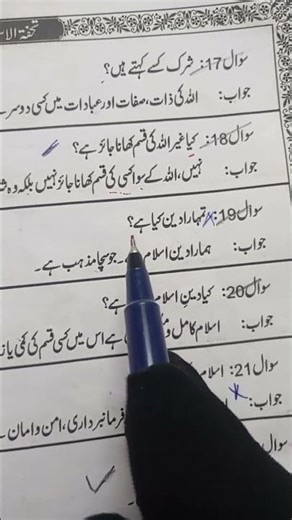 تحفۃ الاس
سوال 17: شرک کسے کہتے ہیں؟
جواب: اللہ کی ذات، صفات اور عبادات میں کسی دوسرے
سوال 18: کیا غیر اللہ کی قسم کھانا جائز ہے؟
جواب: نہیں، اللہ کے سوا کسی کی قسم کھانا جائز نہیں بلکہ وہ
سوال 19: تمہارا دین کیا ہے؟
جواب: ہمارا دین اسلام ۔ جو سچا مذہب ہے۔
سوال 20: کیا دین اسلام ہے؟
جواب: اسلام کامل و ہے اس میں کسی قسم کی کمی یا
سوال 21: اسلام
جواب: فرمانبرداری، امن و امان